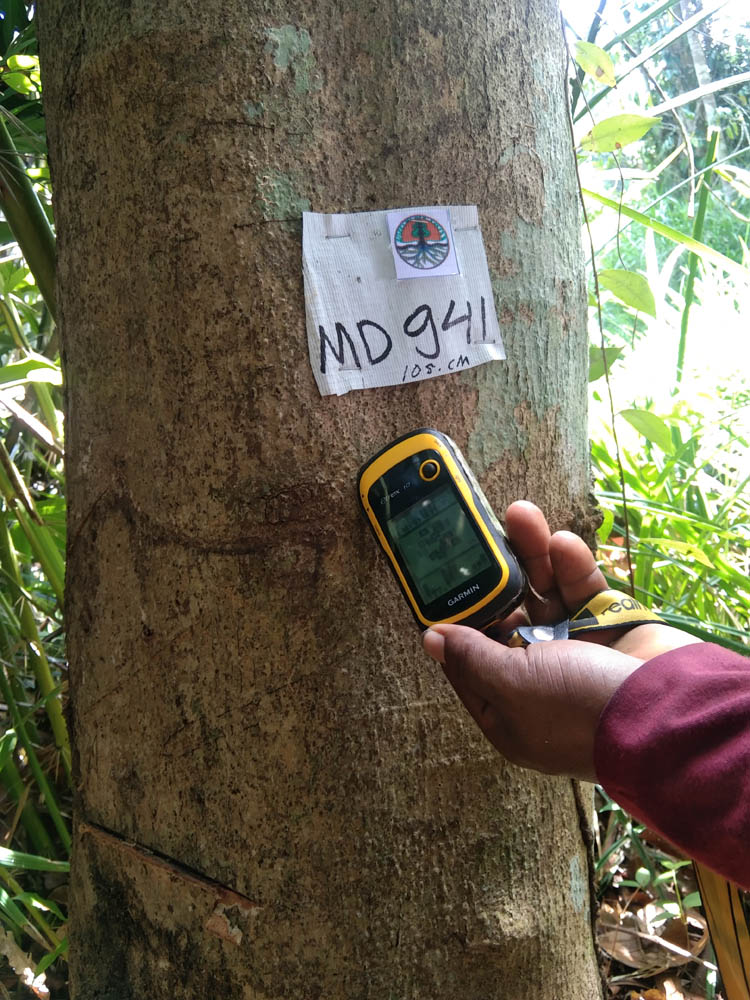 MD 941
105. CM
eTrex 10
GARMIN